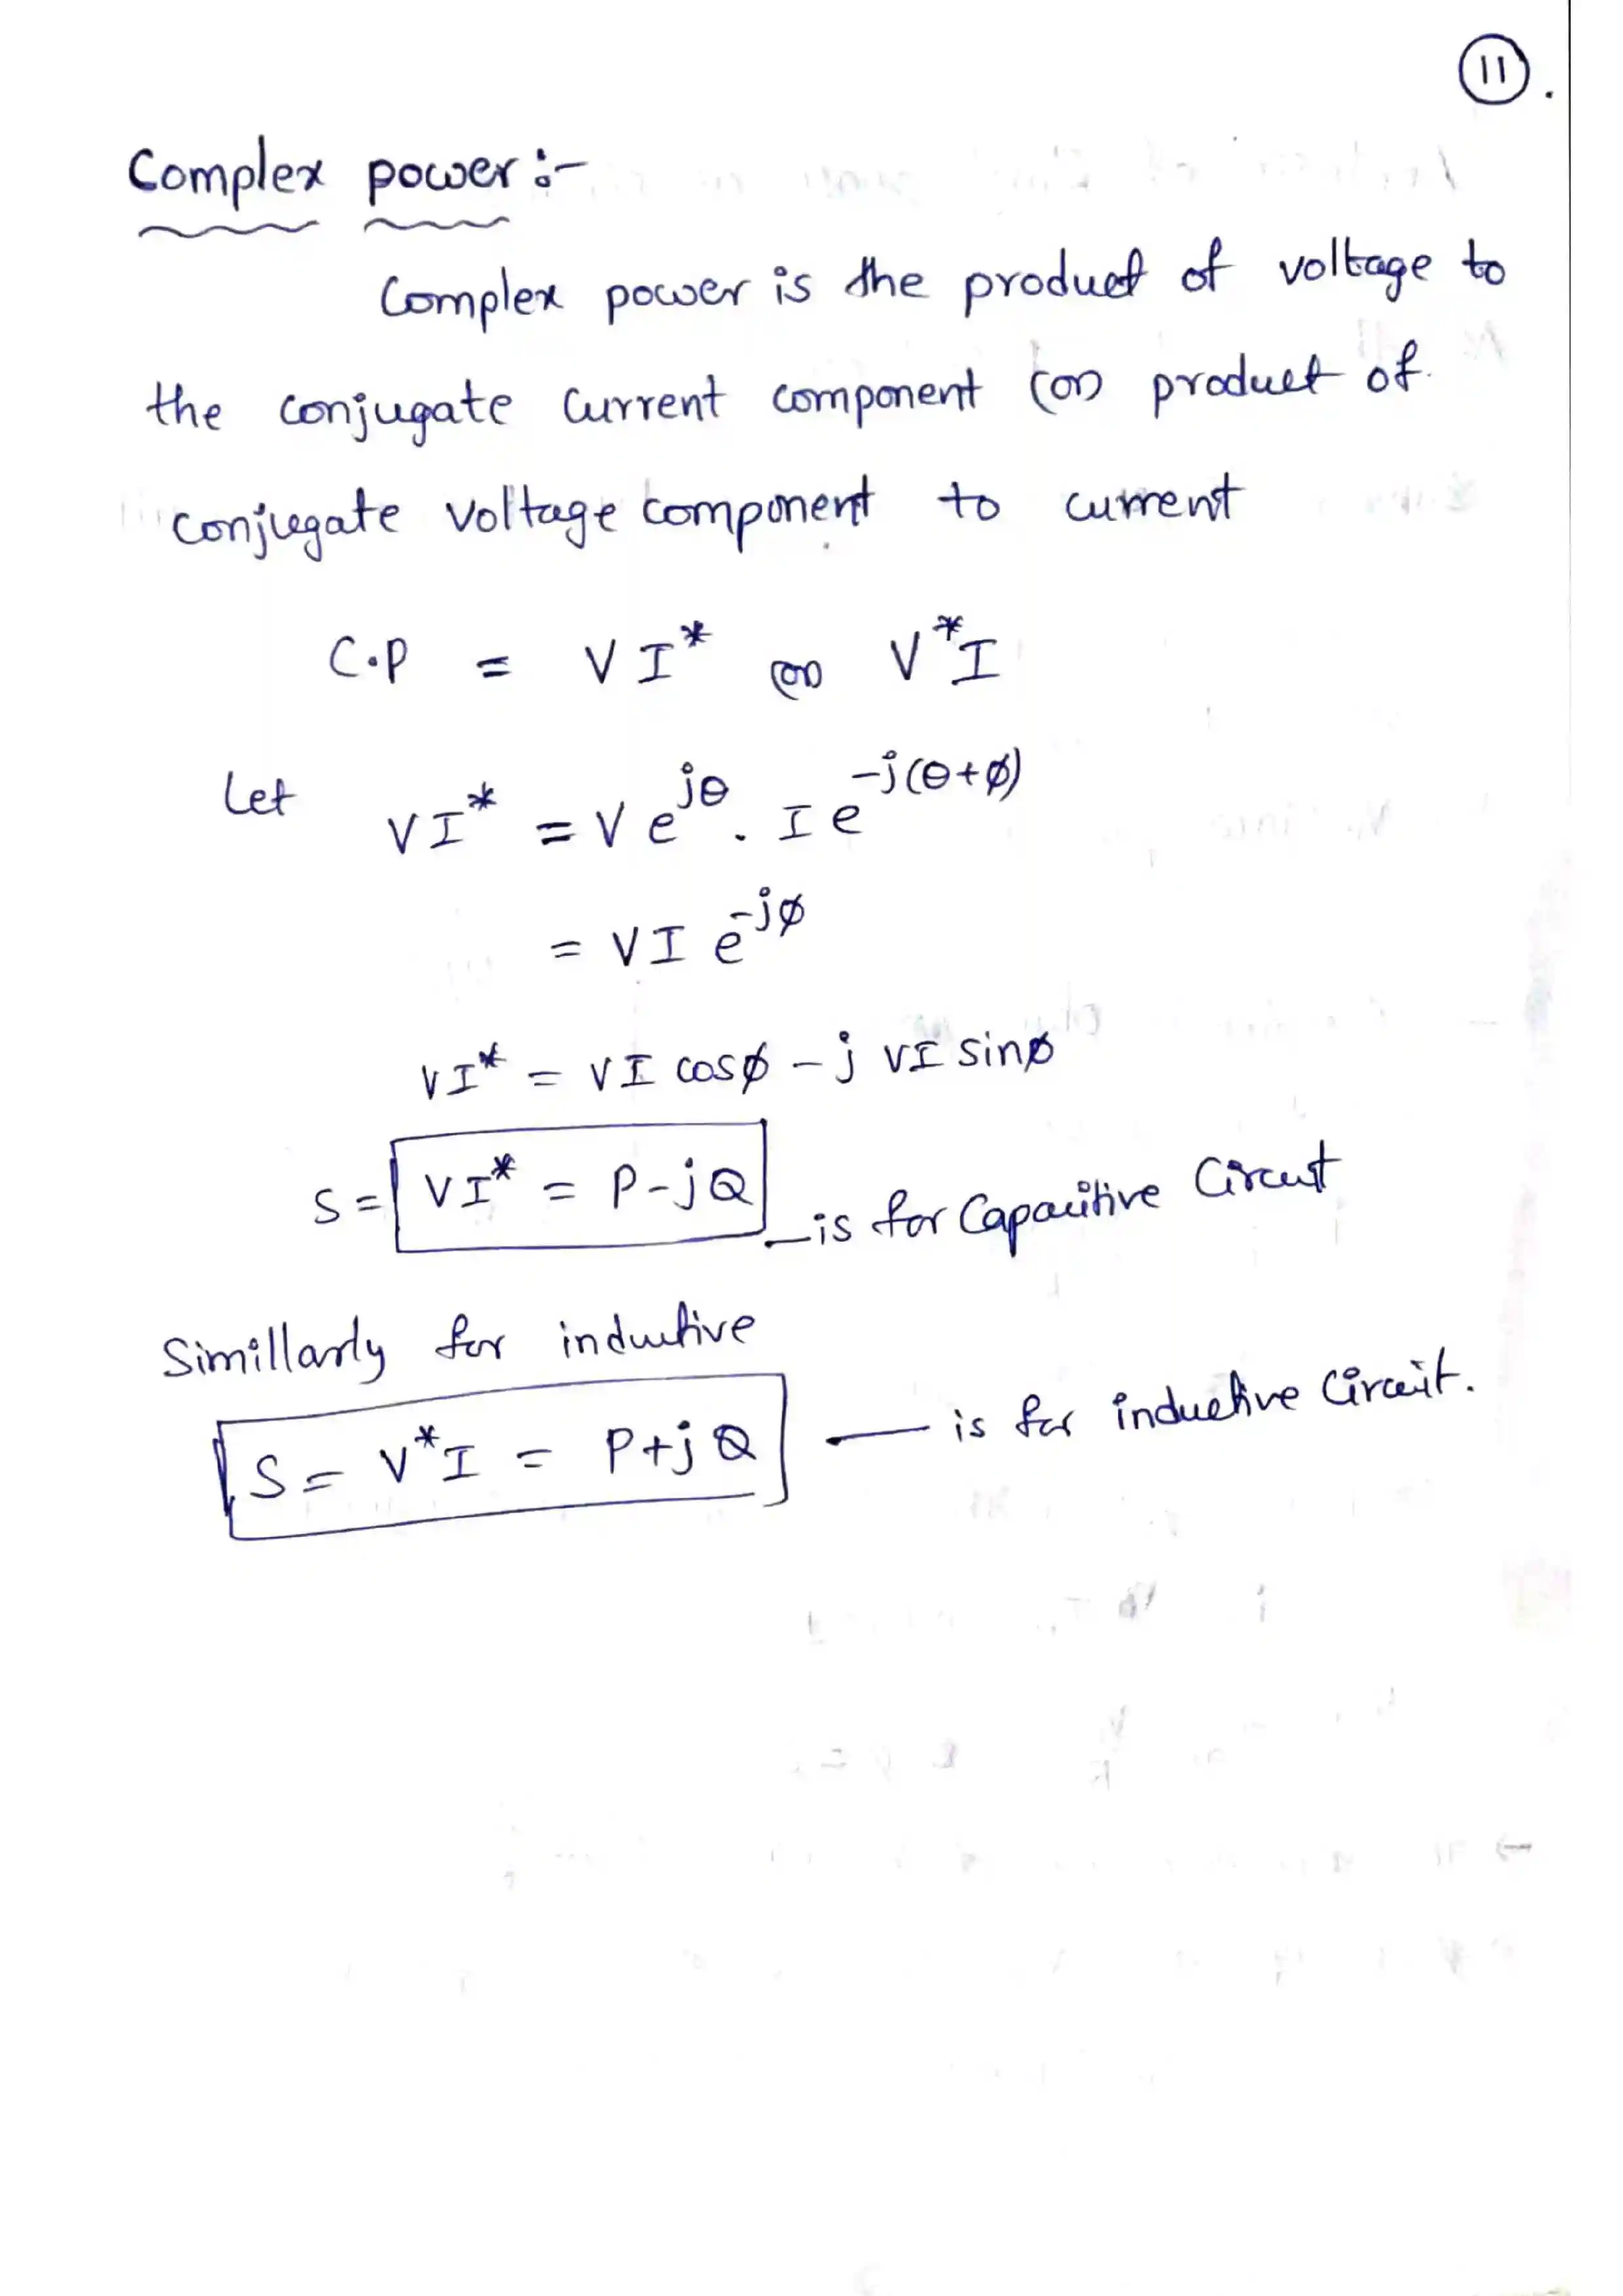 11.
Complex power:-
Complex power is the product of voltage to
the conjugate current component (or) product of
conjugate voltage component to current
C.P = VI* (or) V*I
Let VI* = V e^jθ . I e^-j(θ+φ)
= VI e^-jφ
VI* = VI cosφ - j VI sinφ
S = VI* = P-jQ _is for Capacitive Circuit
Simillarly for inductive
S = V*I = P+jQ — is for inductive Circuit.